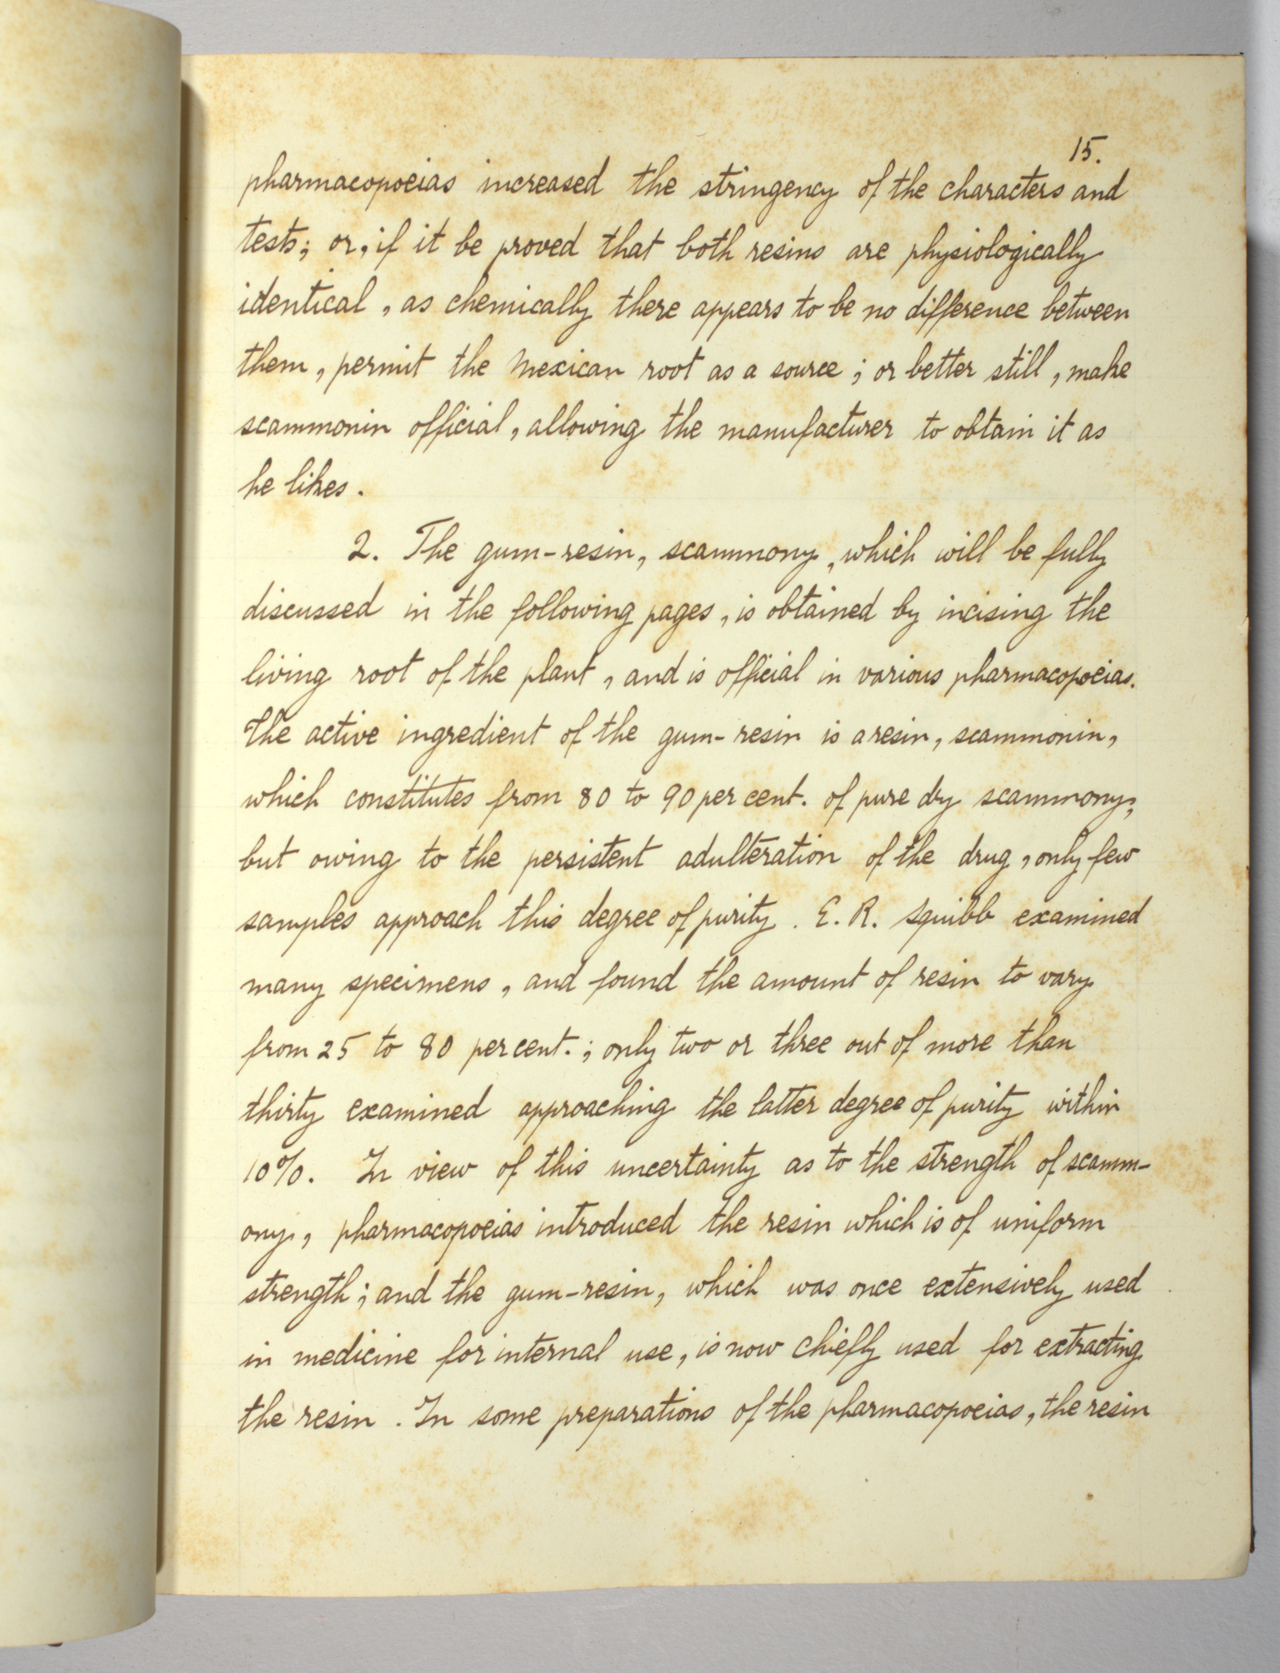 15.
pharmacopoeias increased the stringency of the characters and
tests; or, if it be proved that both resins are physiologically
identical, as chemically there appears to be no difference between
them, permit the Mexican root as a source; or better still, make
scammonin official, allowing the manufacturer to obtain it as
he likes.
2. The gum-resin, scammony, which will be fully
discussed in the following pages, is obtained by incising the
living root of the plant, and is official in various pharmacopoeias.
The active ingredient of the gum-resin is a resin, scammonin,
which constitutes from 80 to 90 per cent. of pure dry scammony;
but owing to the persistent adulteration of the drug, only few
samples approach this degree of purity. E. R. Squibb examined
many specimens, and found the amount of resin to vary
from 25 to 80 per cent.; only two or three out of more than
thirty examined approaching the latter degree of purity within
10%. In view of this uncertainty as to the strength of scamm-
ony, pharmacopoeias introduced the resin which is of uniform
strength; and the gum-resin, which was once extensively used
in medicine for internal use, is now chiefly used for extracting
the resin. In some preparations of the pharmacopoeias, the resin